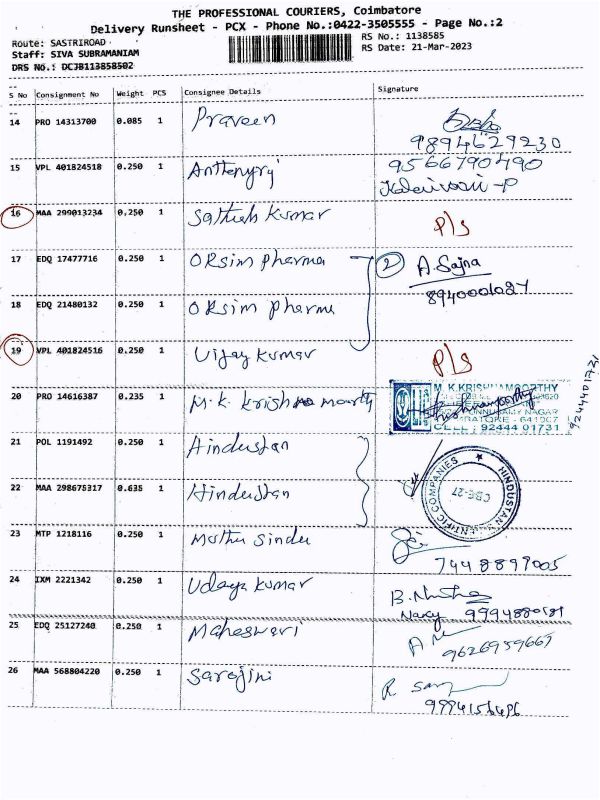 THE PROFESSIONAL COURIERS, Coimbatore
Delivery Runsheet - PCX - Phone No.:0422-3505555 - Page No.:2
Route: SASTRIROAD
RS No.: 1138585
Staff: SIVA SUBRAMANIAM
RS Date: 21-Mar-2023
DRS No.: DCJB113858502
S No Consignment No Weight PCS Consignee Details Signature
14 PRO 14313700 0.085 1 Praveen
9894629230
15 VPL 401824518 0.250 1 Anthonyraj 9566790490
16 MAA 299013234 0.250 1 Sathish Kumar P/s
17 EDQ 17477716 0.250 1 ORsim pharma 2 A. Sajna
8940001087
18 EDQ 21480132 0.250 1 ORsim pharma
19 VPL 401824516 0.250 1 Vijay Kumar P/s
20 PRO 14616387 0.235 1 M.K. Krishna moorthy M.K.KRISHNAMOORTHY
PONNUSAMY NAGAR
COIMBATORE - 641007
CELL : 92444 01731
9244401731
21 POL 1191492 0.250 1 Hindustan
22 MAA 298675317 0.635 1 Hindustan HINDUSTAN SCIENTIFIC COMPANIES
CBE-27
23 MTP 1218116 0.250 1 Muthu Sindu
7448899005
24 IXM 2221342 0.250 1 Udaya Kumar B. Nisha
25 EDQ 25127240 0.250 1 Maheswari
9626959667
26 MAA 568804220 0.250 1 Sarojini R
9994156496